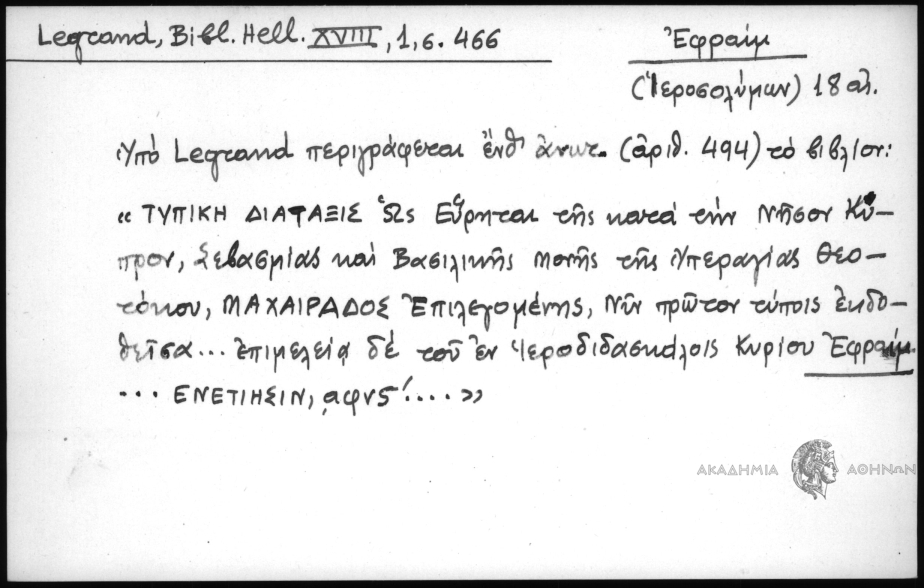 Legrand, Bibl. Hell. XVIII, 1, σ. 466
Ἐφραίμ
(Ἱεροσολύμων) 18 αἰ.
Ὑπό Legrand περιγράφεται ἔνθ' ἀνωτ. (ἀριθ. 494) τό βιβλίον:
« ΤΥΠΙΚΗ ΔΙΑΤΑΞΙΣ Ὡς Εὕρηται τῆς κατά τήν Νῆσον Κύ-
προν, Σεβασμίας καί Βασιλικῆς Μονῆς τῆς Ὑπεραγίας Θεο-
τόκου, ΜΑΧΑΙΡΑΔΟΣ Ἐπιλεγομένης, Νῦν πρῶτον τύποις ἐκδο-
θεῖσα... ἐπιμελείᾳ δέ τοῦ ἐν Ἱεροδιδασκάλοις Κυρίου Ἐφραίμ
... ΕΝΕΤΙΗΣΙΝ, ͵αψνς΄.... »
ΑΚΑΔΗΜΙΑ ΑΘΗΝΩΝ